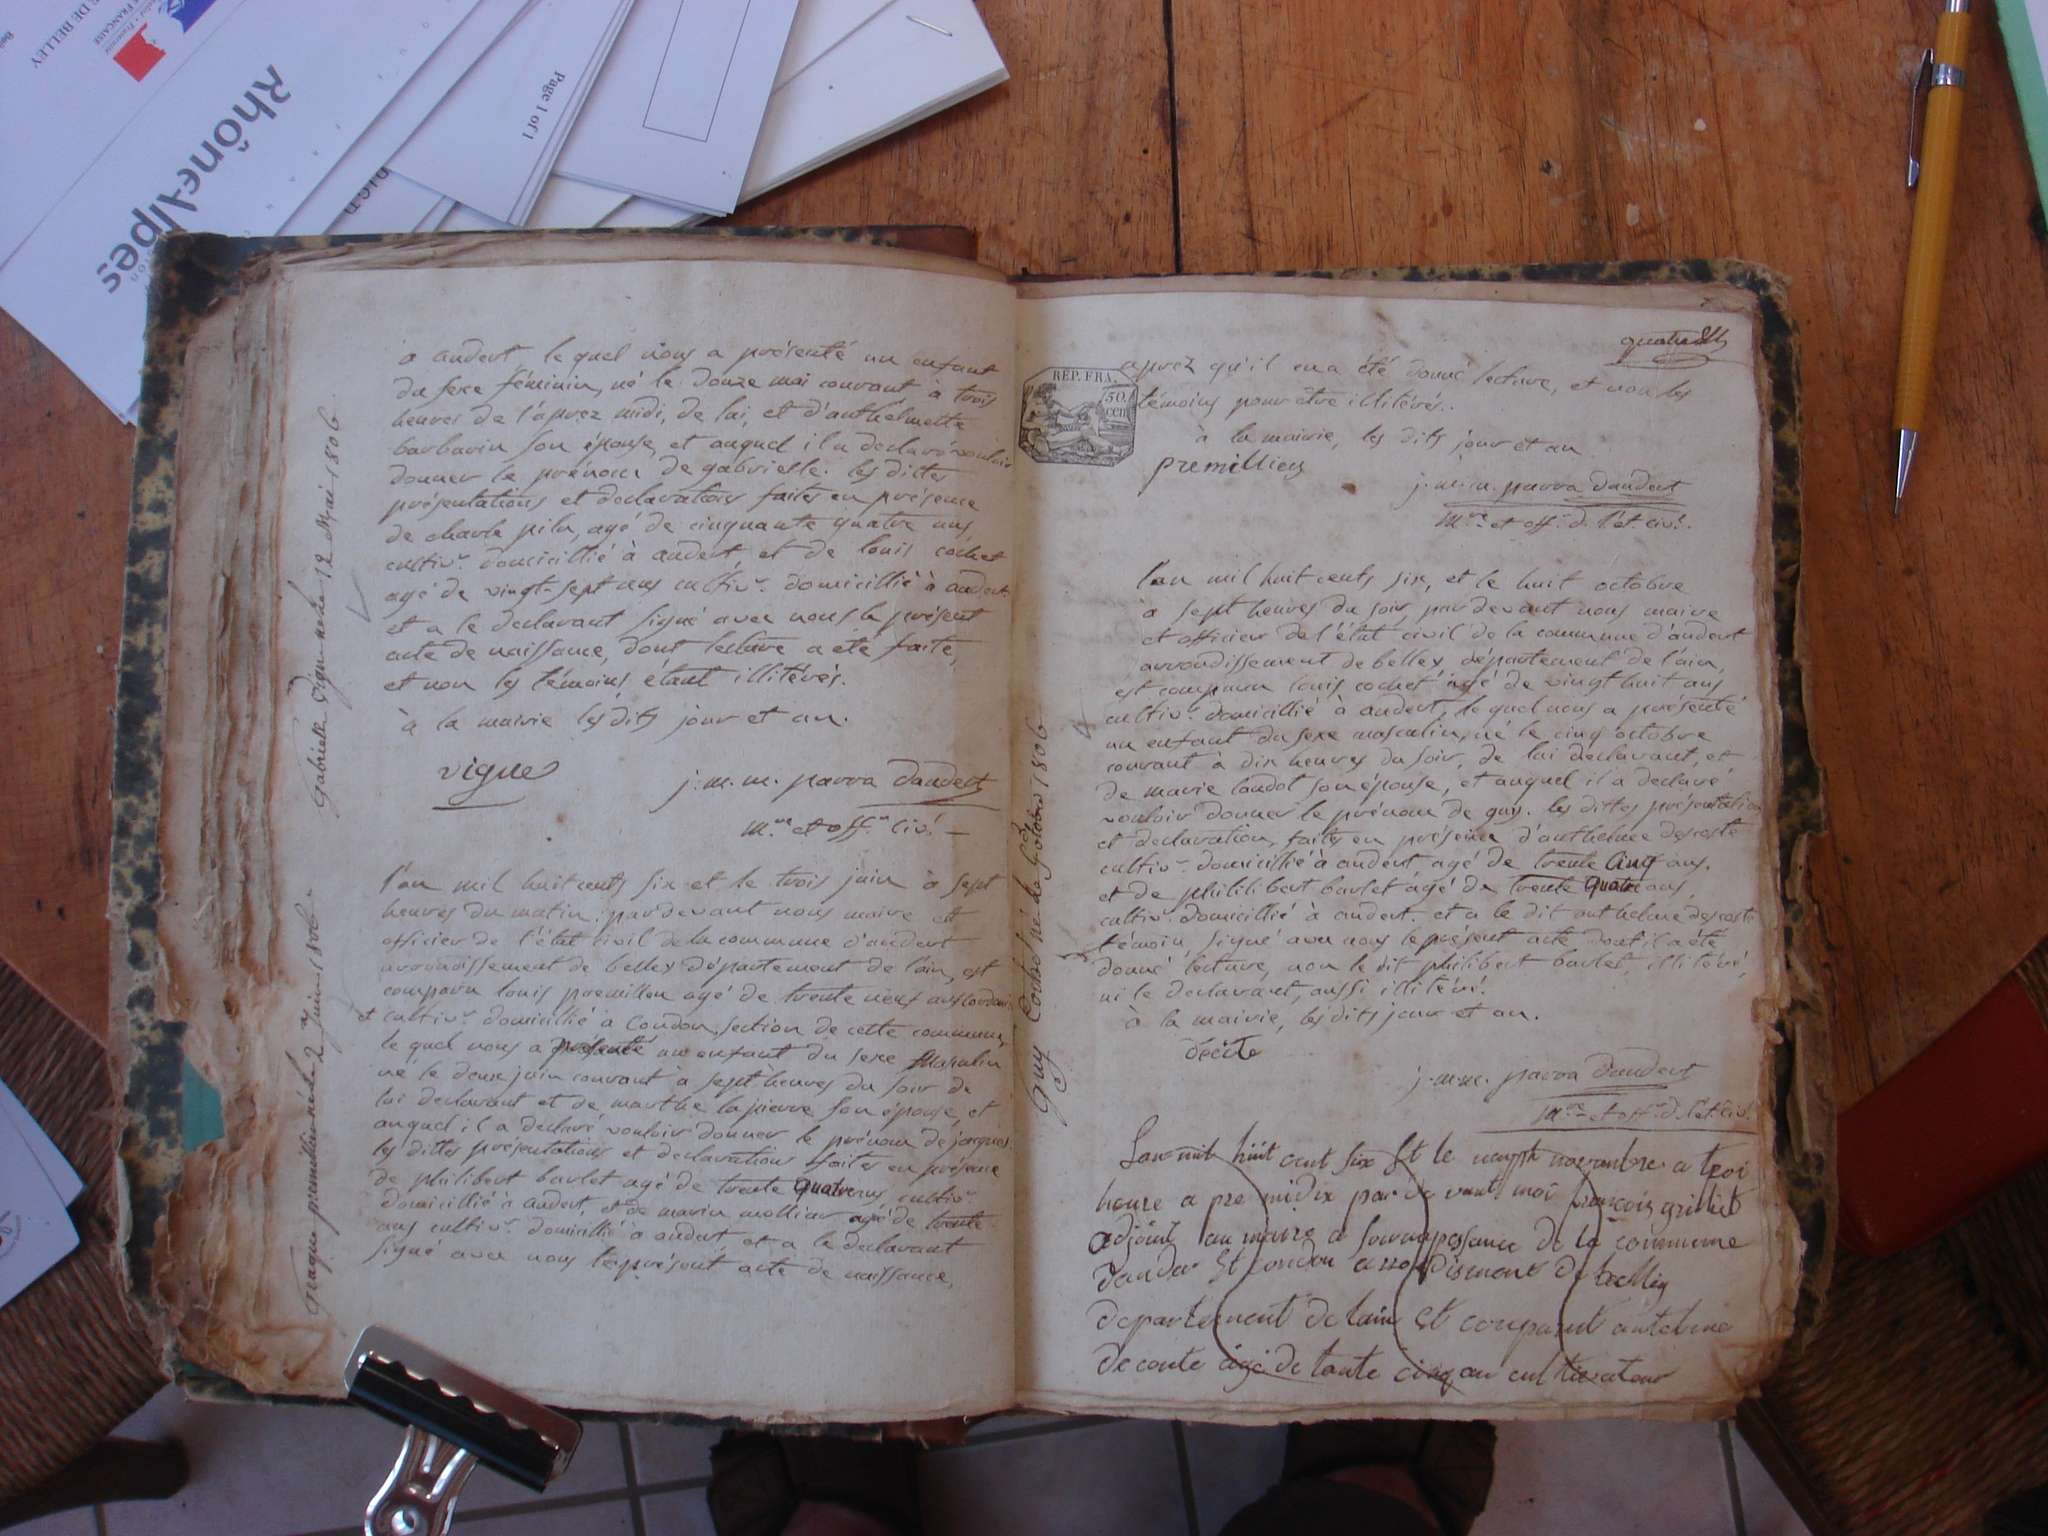 DE BELLEY
Rhône-Alpes
Page 1 of 1
a andert, le quel nous a présenté un enfant
du sexe féminin, né le douze mai courant à trois
heures de l'aprez midi, de lui, et d'anthelmette
barbarin son épouse, et auquel il a declaré vouloir
donner le prénom de gabrielle. les dittes
présentations et declarations faites en présence
de charle pilu, agé de cinquante quatre ans,
cultivr. domicillié à andert et de louis cochet
agé de vingt-sept ans cultivr. domicillié à andert
et a le declarant signé avec nous le présent
acte de naissance, dont lecture a été faite,
et non les témoins étant illitérés.
à la mairie les dits jour et an.
vigne
j. m. m. parra dandert
mre et offr civil
Gabrielle Vigne née le 12 Mai 1806.
l'an mil huit cents six et le trois juin à sept
heures du matin, pardevant nous maire et
officier de l'état civil de la commune d'andert
arrondissement de belley département de l'ain, est
comparu louis premillieu agé de trente neuf ans
et cultivr. domicillié à Condon, section de cette commune,
le quel nous a présenté un enfant du sexe masculin
né le deux juin courant à sept heures du soir de
lui declarant et de marthe lapierre son épouse, et
auquel il a declaré vouloir donner le prénom de jacques.
les dittes présentations et declarations faites en présence
de philibert barlet agé de trente quatre ans, cultivr.
domicillié à andert, et de marin molliar agé de trente
ans cultivr. domicillié à andert et a le declarant
signé avec nous le présent acte de naissance,
jacques premillieu né le 2 juin 1806.
REP. FRA.
50.
cen
aprez qu'il en a été donné lecture, et non les
témoins pour être illitérés.
à la mairie, les dits jour et an
premillieu
j. m. m. parra dandert
mre et offr d. l'ét. civl.
l'an mil huit cents six, et le huit octobre
à sept heures du soir, pardevant nous maire
et officier de l'état civil de la commune d'andert
arrondissement de belley, département de l'ain,
est comparu louis cochet agé de vingt huit ans
cultivr. domicillié à andert, le quel nous a présenté
un enfant du sexe masculin, né le cinq octobre
courant à dix heures du soir, de lui declarant, et
de marie landot son épouse, et auquel il a declaré
vouloir donner le prénom de guy. les dittes présentation
et declaration, faites en présence d'anthelme descoste
cultivr. domicillié à andert agé de trente cinq ans.
et de philibert barlet agé de trente quatre ans,
cultivr. domicillié à andert. et a le dit anthelme descoste
témoin, signé avec nous le présent acte dont il a été
donné lecture, non le dit philibert barlet, illitéré,
ni le declarant, aussi illitéré.
à la mairie, les dits jour et an.
j. m. m. parra dandert
mre et offr d. l'ét. civl.
Guy Cochet né le 5 octobre 1806
Lan mil huit cent six Et le novembre a troi
heure a pre midix par de vant moi françois grillet
adjoint au maire de la commune
dander Et condon arrondisment de belley
departement de lain Et conparut antelme
de coute agé de tante cinq an cultivateur